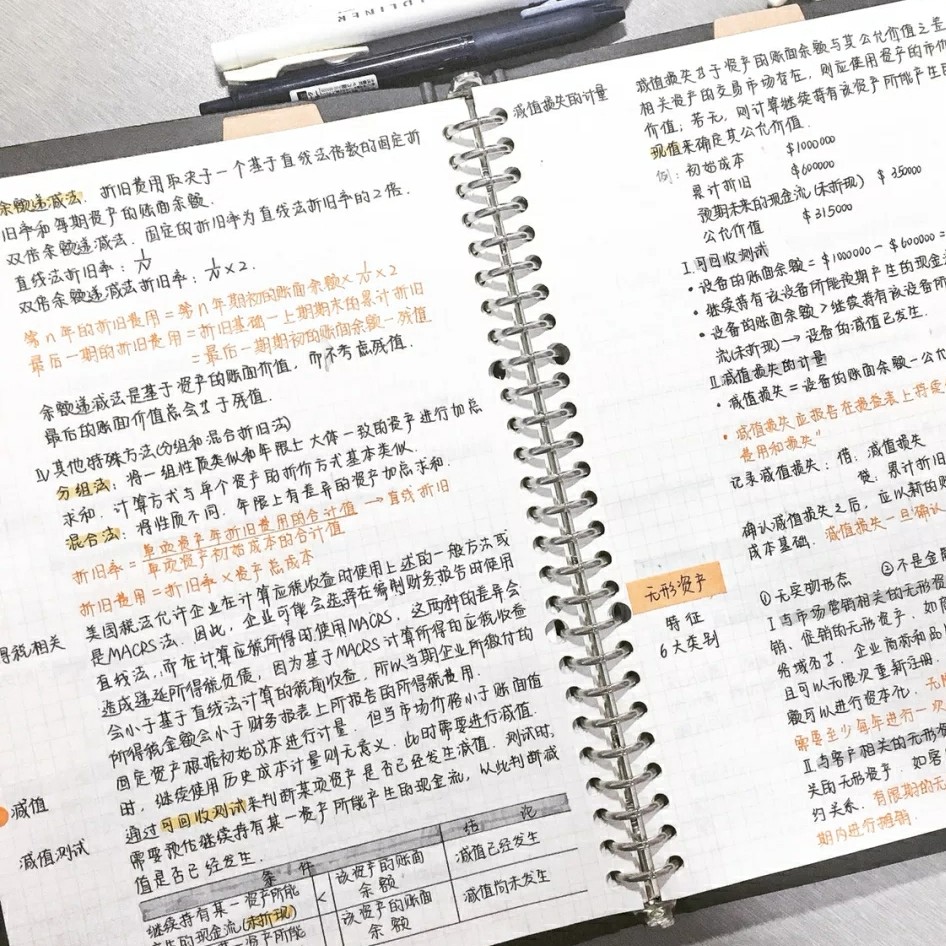 余额递减法：折旧费用取决于一个基于直线法倍数的固定折
旧率和每期资产的账面余额.
双倍余额递减法：固定的折旧率为直线法折旧率的2倍.
直线法折旧率：1/N
双倍余额递减法折旧率：1/N×2.
第n年的折旧费用=第n年期初的账面余额×1/N×2
最后一期的折旧费用=折旧基础-上期期末的累计折旧
=最后一期期初的账面余额-残值
余额递减法是基于资产的账面价值，而不考虑残值.
最后的账面价值总会等于残值.
Ⅳ其他特殊方法(分组和混合折旧法)
分组法：将一组性质类似和年限上大体一致的资产进行加总
求和，计算方式与单个资产的折价方式基本类似.
混合法：将性质不同，年限上有差异的资产加总求和.
折旧率=单项资产年折旧费用的合计值/单项资产初始成本的合计值→直线折旧
折旧费用=折旧率×资产总成本
得税相关
美国税法允许企业在计算应税收益时使用上述的一般方法或
是MACRS法。因此，企业可能会选择在编制财务报告时使用
直线法，而在计算应税所得时使用MACRS。这两种的差异会
造成递延所得税负债，因为基于MACRS计算所得的应税收益
会小于基于直线法计算的税前收益，所以当期企业所缴付的
所得税金额会小于财务报表上所报告的所得税费用.
减值
固定资产根据初始成本进行计量，但当市场价格小于账面值
时，继续使用历史成本计量则无意义，此时需要进行减值.
减值测试
通过可回收测试来判断某项资产是否已经发生减值，测试时，
需要预估继续持有某一资产所能产生的现金流，从此判断减
值是否已经发生.
条件 结论
继续持有某一资产所能 < 该资产的账面 减值已经发生
产生的现金流(未折现) 余额
资产所能 该资产的账面 减值尚未发生
余额
减值损失的计量
减值损失等于资产的账面余额与其公允价值之差
相关资产的交易市场存在，则应使用资产的市价
价值；若无，则计算继续持有该资产所能产生的
现值来确定其公允价值.
例：初始成本 $1000000
累计折旧 $600000
预期未来的现金流(未折现) $35000
公允价值 $315000
Ⅰ.可回收测试
• 设备的账面余额=$1000000-$600000=
• 继续持有该设备所能预期产生的现金
• 设备的账面余额>继续持有该设备所
流(未折现)→设备的减值已发生.
Ⅱ减值损失的计量
• 减值损失=设备的账面余额-公允
• 减值损失应报告在损益表上持续
费用和损失"
记录减值损失：借：减值损失
贷：累计折旧
确认减值损失之后，应以新的账
成本基础. 减值损失一旦确认
无形资产
特征
6大类别
①无实物形态 ②不是金融
Ⅰ与市场营销相关的无形资
销、促销的无形资产，如
络域名、企业商标和品
且可以无限次重新注册.
额可以进行资本化，无
需要至少每年进行一次
Ⅱ与客户相关的无形资
关的无形资产，如客
约关系，有限期的无
期内进行摊销.